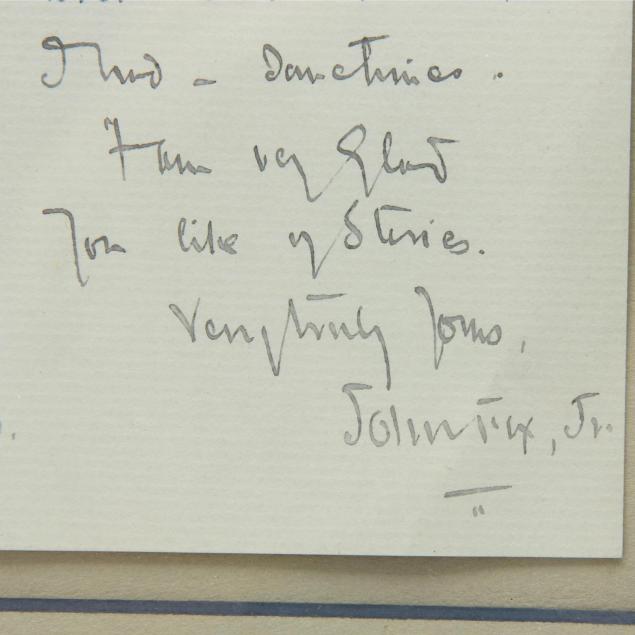 I find - Sometimes.
I am very glad
you like my Stories.
Very truly yours,
John Fox, Jr.